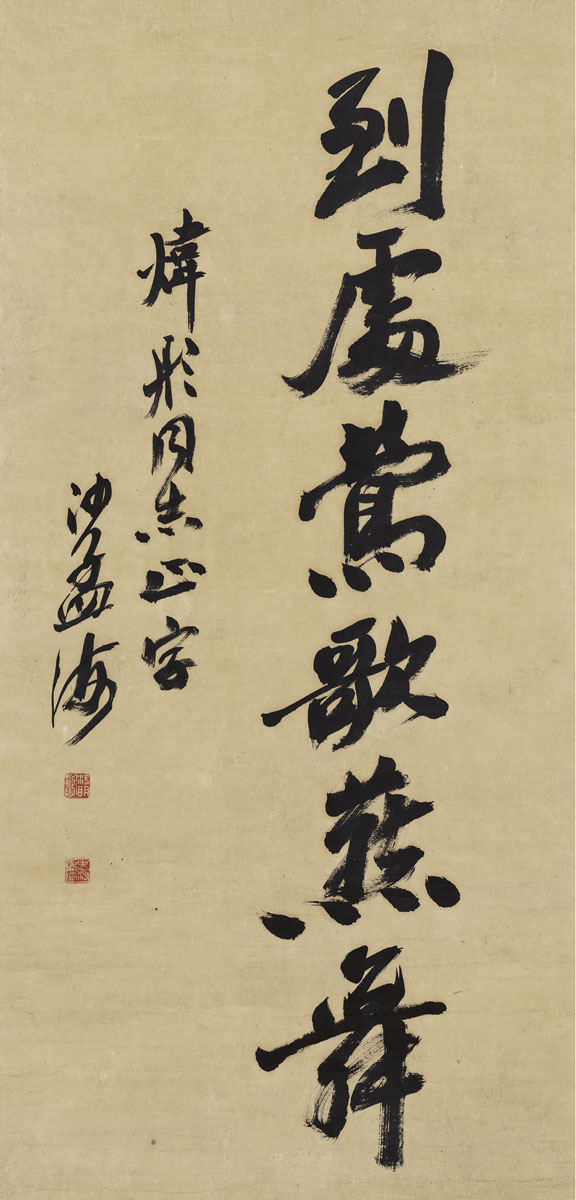 到處鶯歌燕舞
煒彤同志正字
沙孟海